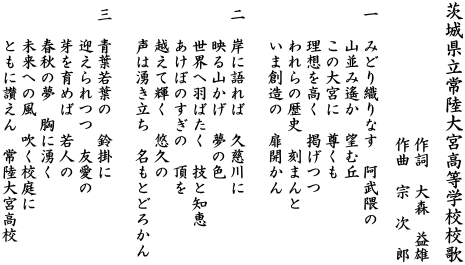 茨城県立常陸大宮高等学校校歌
作詞　大森　益雄
作曲　宗　次　郎
一　みどり織りなす　阿武隈の
山並み遙か　望む丘
この大宮に　尊くも
理想を高く　掲げつつ
われらの歴史　刻まんと
いま創造の　扉開かん
二　岸に語れば　久慈川に
映る山かげ　夢の色
世界へ羽ばたく　技と知恵
あけぼのすぎの　頂を
越えて輝く　悠久の
声は湧き立ち　名もとどろかん
三　青葉若葉の　鈴掛に
迎えられつつ　友愛の
芽を育めば　若人の
春秋の夢　胸に湧く
未来への風　吹く校庭に
ともに讃えん　常陸大宮高校